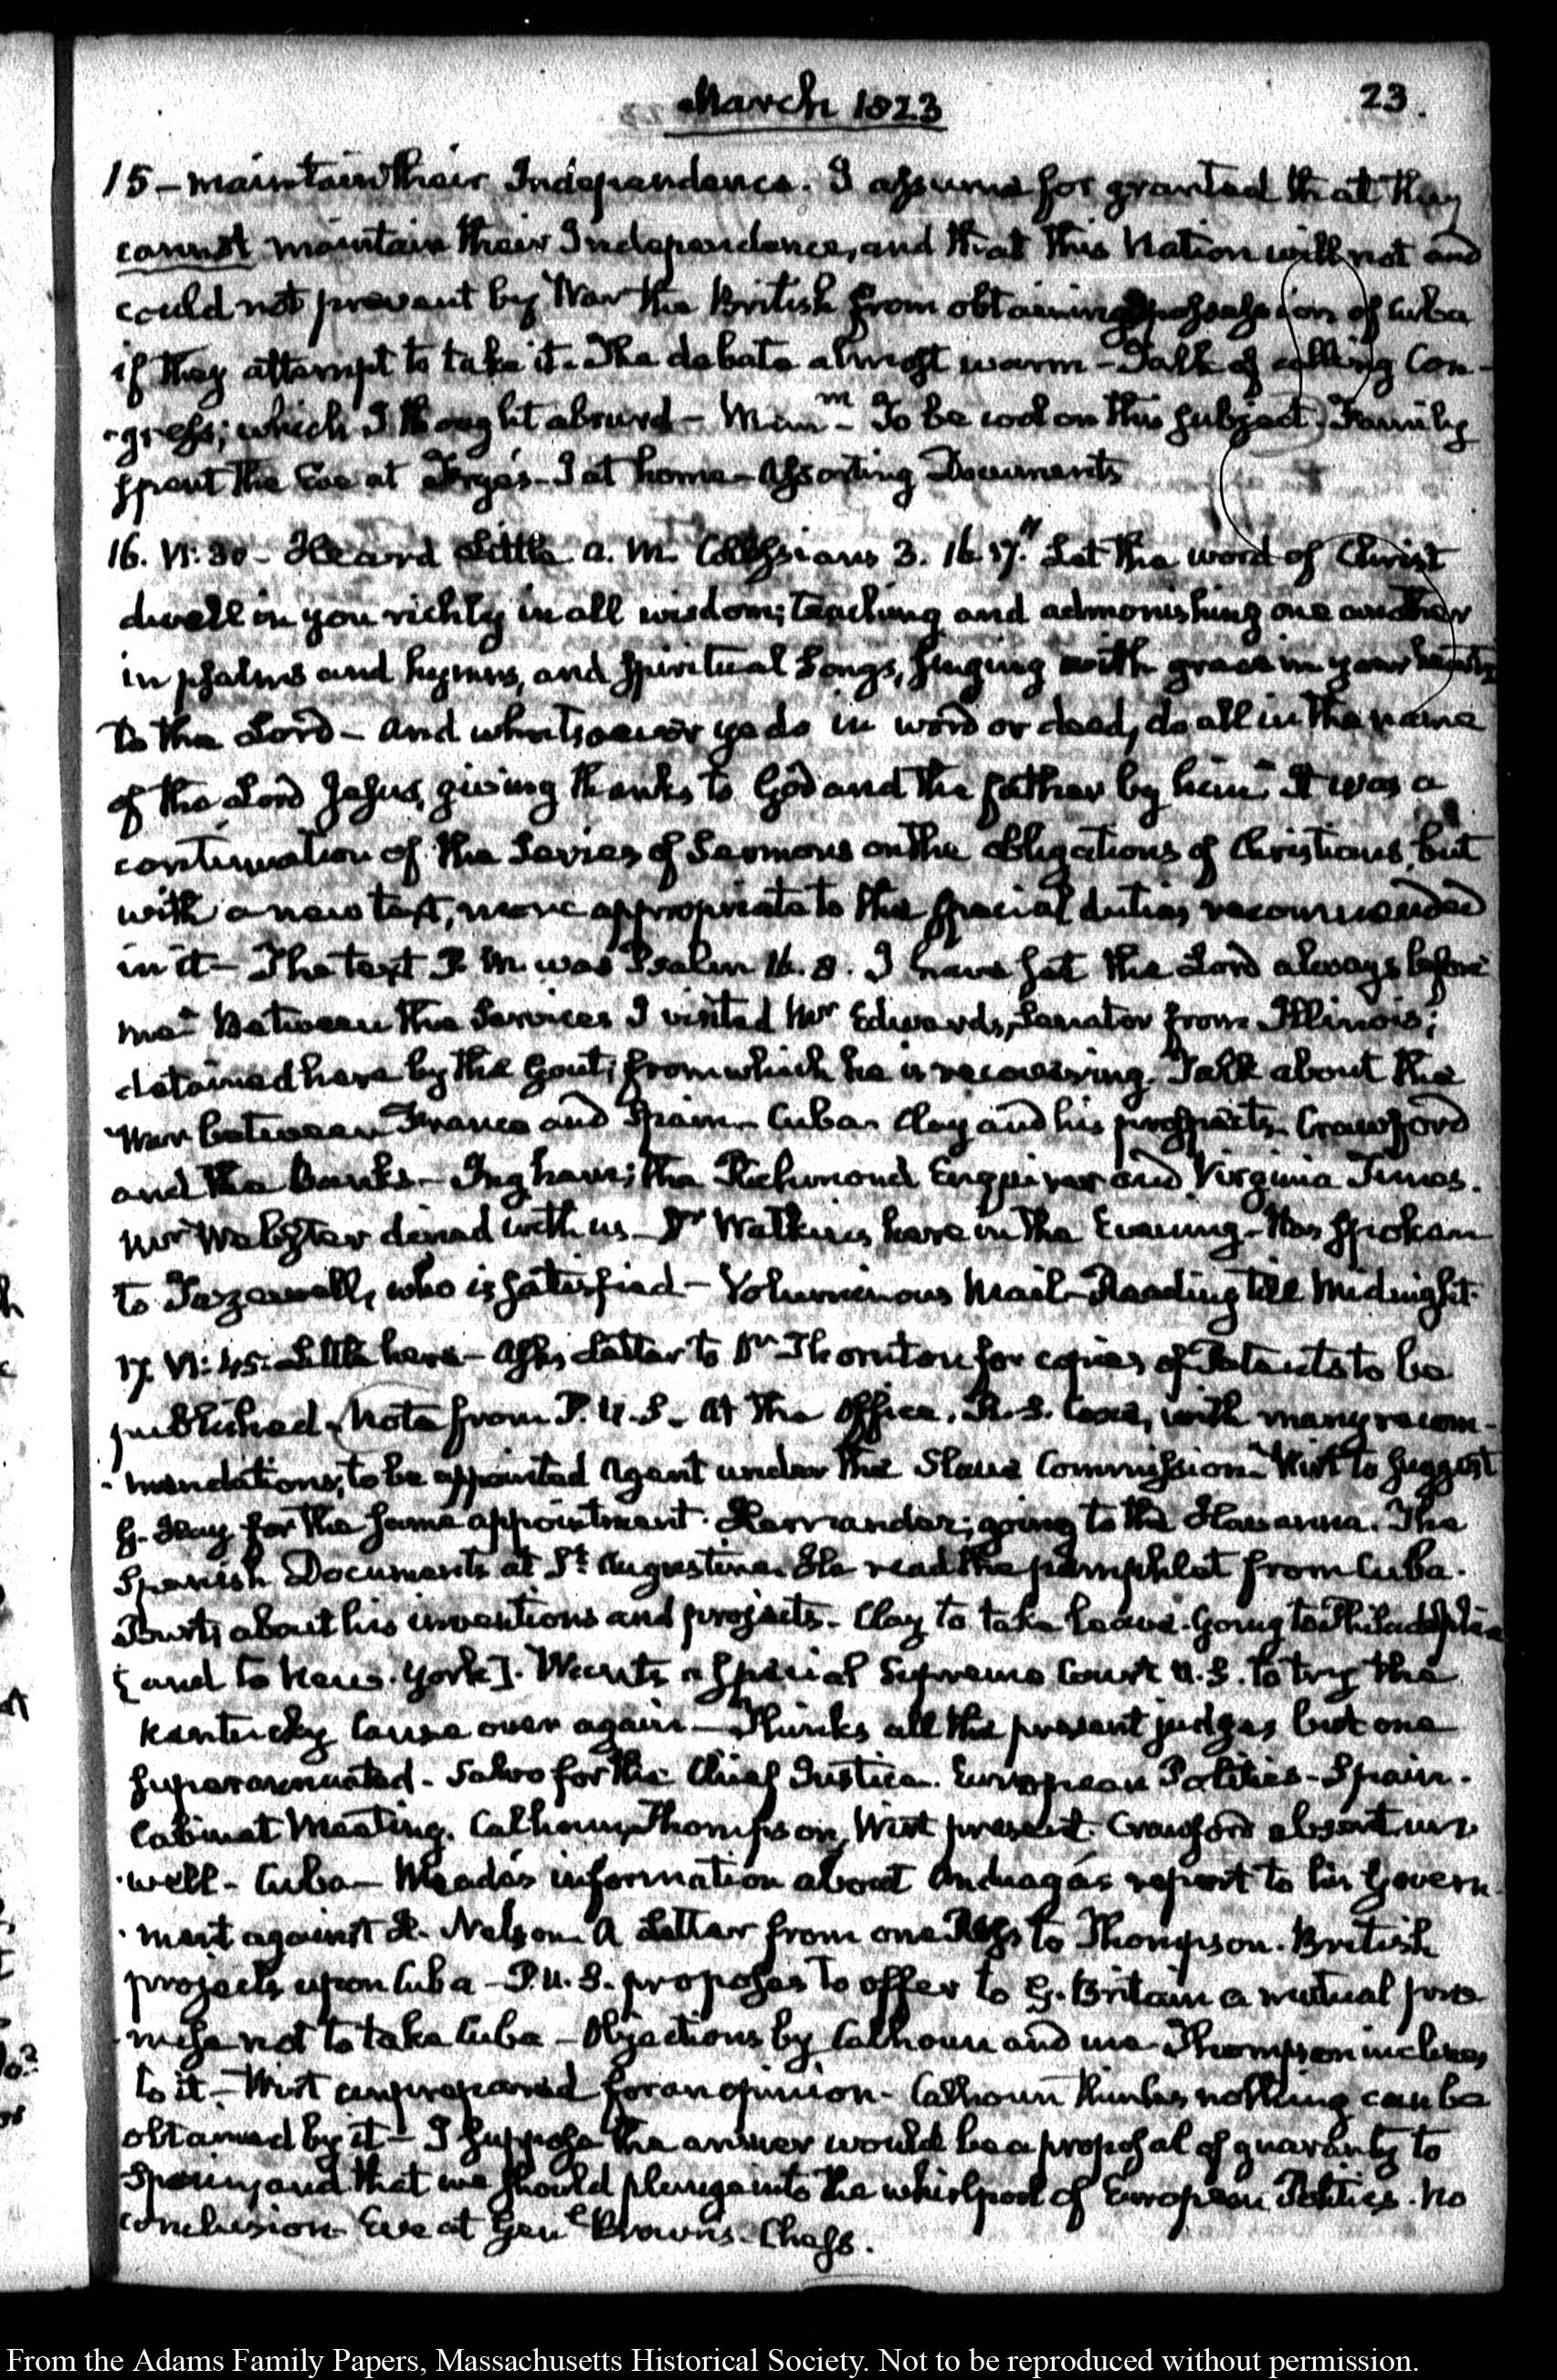 March 1823
23.
15 – maintain their Independence. I assume for granted that they
cannot maintain their Independence, and that this Nation will not and
could not prevent by War the British from obtaining possession of Cuba
if they attempt to take it. The debate almost warm – Talk of calling Con-
-gress; which I thought absurd – Mem.m To be cool on this subject. Family
spent the Eve at Frye's – I at home – Assorting Documents
16. VI:30 – Heard Little A.M. Collossians 3. 16. 17. "Let the word of Christ
dwell in you richly in all wisdom; teaching and admonishing one another
in psalms and hymns, and spiritual songs, singing with grace in your hearts
to the Lord – and whatsoever ye do in word or deed, do all in the name
of the Lord Jesus, giving thanks to God and the father by him" It was a
continuation of the series of Sermons on the obligations of Christians, but
with a new text, more appropriate to the special duties recommended
in it – The text P.M. was Psalm 16. 8. I have set the Lord always before
me" Between the Services I visited Mr Edwards, Senator from Illinois;
detained here by the Gout; from which he is recovering. Talk about the
War between France and Spain – Cuba – Clay and his prospects – Crawford
and the Banks – Ingham; the Richmond Enquirer and Virginia Times.
Mr Webster dined with us – Dr Watkins here in the Evening – Has spoken
to Tazewell, who is satisfied – Voluminous Mail – Reading till Midnight.
17. VI:45. Little here – Asks Letter to Dr Thornton for copies of Patents to be
published. Note from P.U.S. At the Office. R. S. Coxe, with many recom-
-mendations, to be appointed Agent under the Slave Commission – Wirt to suggest
G. Hay for the same appointment. Hernandez; going to the Havanna. The
Spanish Documents at St Augustine. He read the pamphlet from Cuba.
about his inventions and projects – Clay to take leave. Going to Philadelphia
[and to New-York]. Wants a special Supreme Court U.S. to try the
Kentucky Cause over again – Thinks all the present judges but one
superannuated – Salvo for the Chief Justice. European Politics – Spain.
Cabinet Meeting. Calhoun, Thompson, Wirt present. Crawford absent un-
-well – Cuba – Meade's information about Anduaga's report to his Govern-
-ment against H. Nelson. A Letter from one to Thompson. British
projects upon Cuba – P.U.S. proposes to offer to G. Britain a mutual pro-
-mise not to take Cuba – Objections by Calhoun and me – Thompson inclines
to it – Wirt unprepared for an opinion – Calhoun thinks nothing can be
obtained by it – I suppose the answer would be a proposal of guaranty to
Spain, and that we should plunge into the whirlpool of European Politics. No
conclusion – Eve at Genl Brown's. Chess.
From the Adams Family Papers, Massachusetts Historical Society. Not to be reproduced without permission.